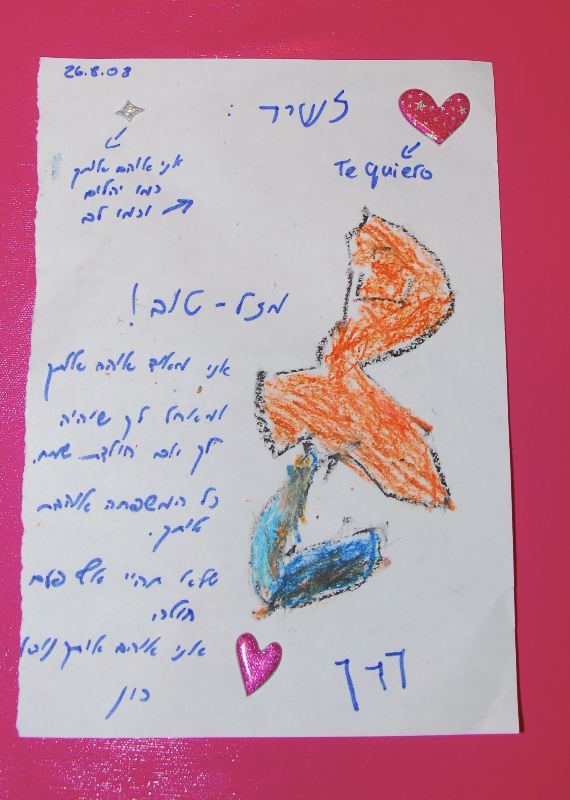 26.8.08
לשיר :
Te quiero
אני אוהב אותך
כמו יהלום
וכמו לב
מזל-טוב!
אני מאוד אוהב אותך
ומאחל לך שיהיה
לך יום הולדת שמח.
כל המשפחה אוהבת
אותך.
שלא תהיי אף פעם
חולה
אני אוהב אותך
רון